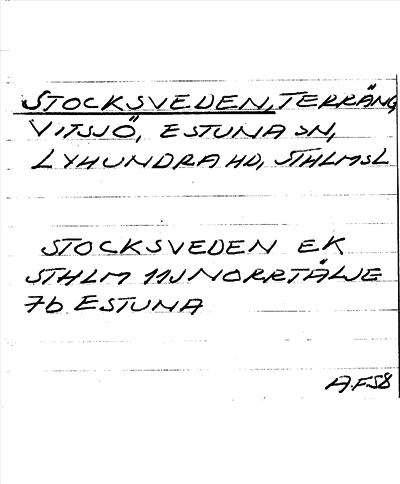 STOCKSVEDEN, TERRÄNG,
VITSJÖ, ESTUNA SN,
LYHUNDRA HD, STHLMSL
STOCKSVEDEN EK
STHLM 11J NORRTÄLJE
7b ESTUNA
A.F.58